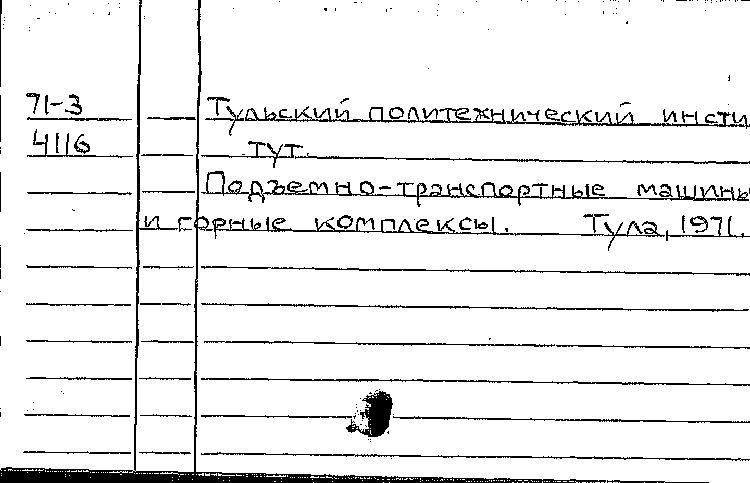 71-3 Тульский политехнический инсти
4116 тут.
Подъемно-транспортные машины
и горные комплексы. Тула, 1971.